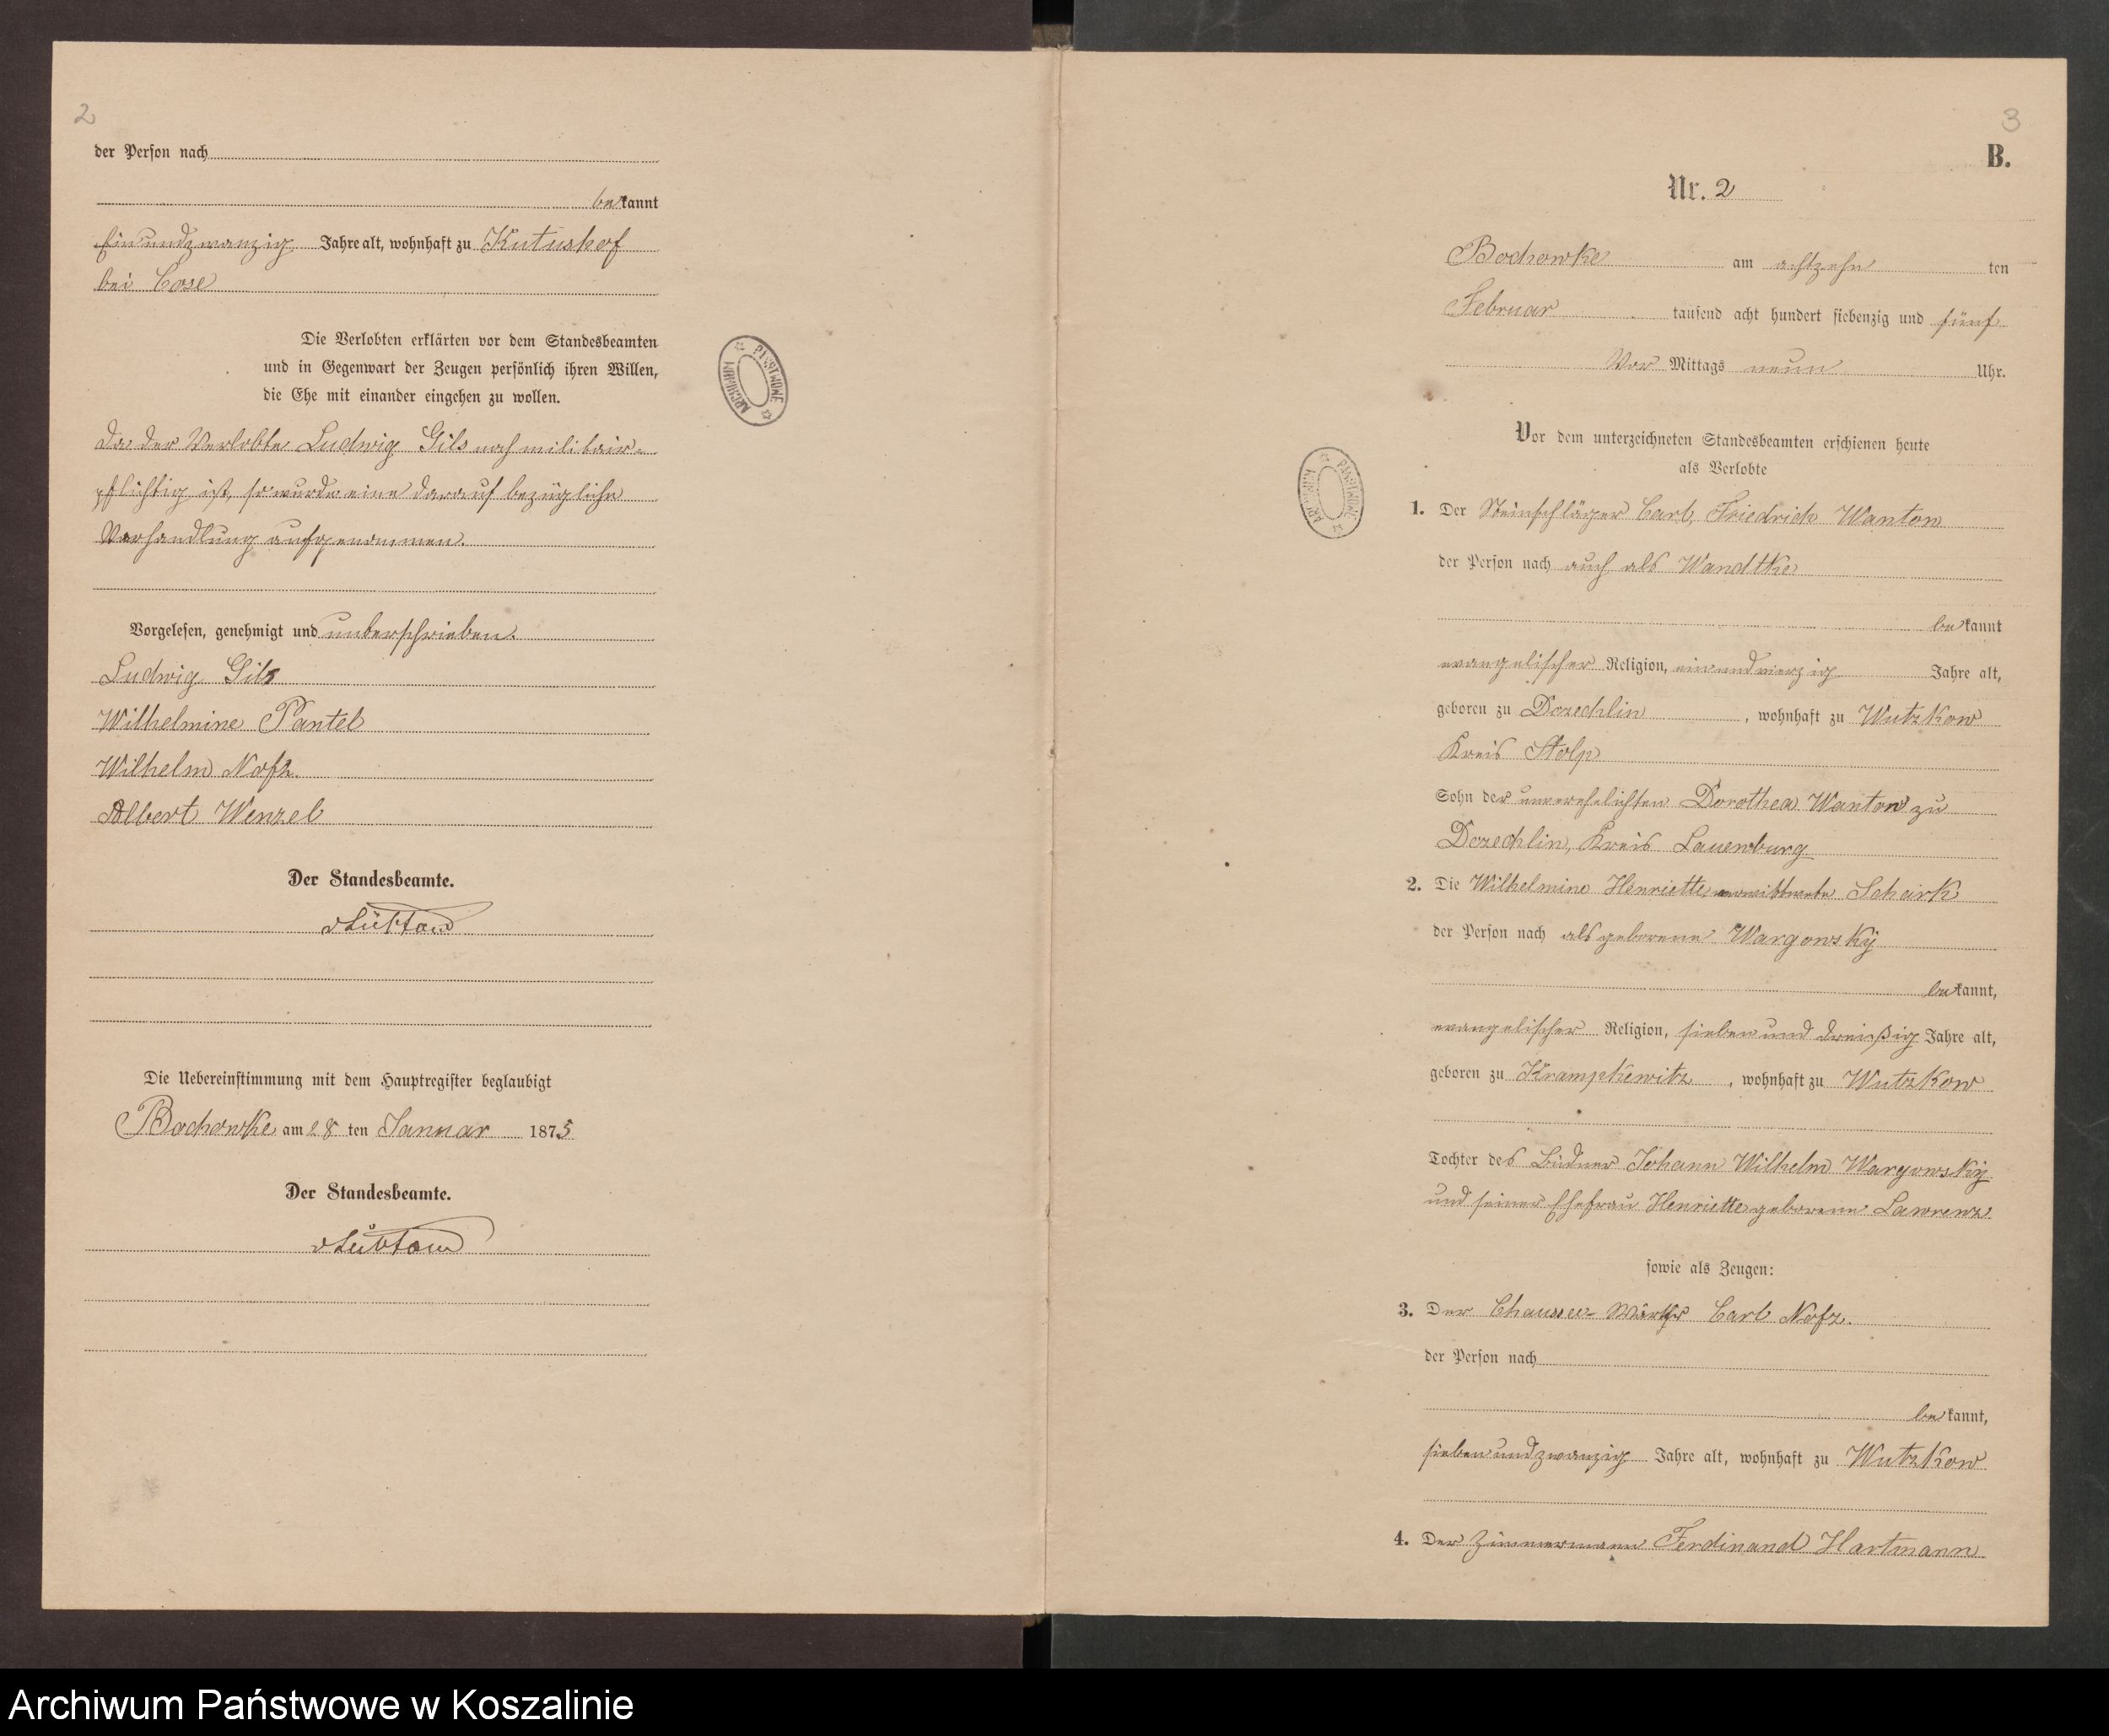 2
der Person nach
bekannt
einundzwanzig Jahre alt, wohnhaft zu Kutushof
bei Cose
Die Verlobten erklärten vor dem Standesbeamten
und in Gegenwart der Zeugen persönlich ihren Willen,
die Ehe mit einander eingehen zu wollen.
Da der Verlobte Ludwig Gils noch militair-
pflichtig ist, so wurde eine darauf bezügliche
Verhandlung aufgenommen.
Vorgelesen, genehmigt und unterschrieben.
Ludwig Gils
Wilhelmine Pantel
Wilhelm Nofz.
Albert Wenzel
Der Standesbeamte.
Die Uebereinstimmung mit dem Hauptregister beglaubigt
Bochowke am 28 ten Januar 1875
Der Standesbeamte.
ARCHIWUM PAŃSTWOWE
3
B.
Nr. 2
Bochowke am achtzehn ten
Februar tausend acht hundert siebenzig und fünf
Vor Mittags neun Uhr.
Vor dem unterzeichneten Standesbeamten erschienen heute
als Verlobte
ARCHIWUM PAŃSTWOWE
1. Der Steinschläger Carl, Friedrich Wanton
der Person nach auch als Wandtke
bekannt
evangelischer Religion, einundvierzig Jahre alt,
geboren zu Dzechlin, wohnhaft zu Wutzkow
Kreis Stolp
Sohn der unverehelichten Dorothea Wanton zu
Dzechlin, Kreis Lauenburg
2. Die Wilhelmine Henriette verwittwete Schark
der Person nach als geborene Wargowsky
bekannt,
evangelischer Religion, sieben und dreißig Jahre alt,
geboren zu Krampkewitz, wohnhaft zu Wutzkow
Tochter des Büdner Johann Wilhelm Wargowsky
und seiner Ehefrau Henriette geborene Lawrenz
sowie als Zeugen:
3. Der Chaussee-Wärter Carl Nofz.
der Person nach
bekannt,
siebenundzwanzig Jahre alt, wohnhaft zu Wutzkow
4. Der Zimmermann Ferdinand Hartmann
Archiwum Państwowe w Koszalinie